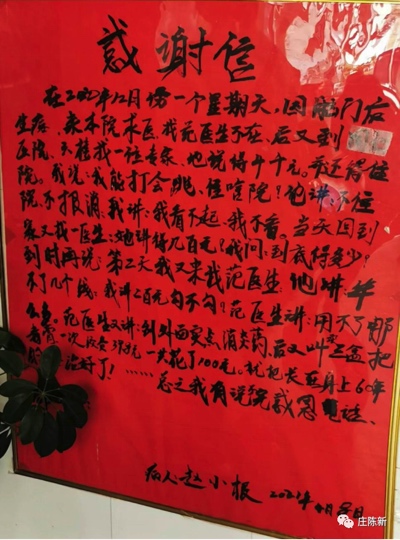 感谢信
在2020年12月份一个星期天，因肛门后
生疮，来本院求医，我范医生不在，后又到
医院，天桂找一位专家，他说得4千元。希还得住
院，我说：我能打会跳，住啥院？他讲：不住
院不报消，我讲：我看不起，我不看。当天回到
家又找一医生：她讲得几百元？我问：到底得多少？
到时再说：第二天我又来找范医生，他讲：华
不了几个钱：我讲二百元勾不勾？范医生讲：用不了那
么多。范医生又讲：到外面买点消炎药，后又叫
一次 收务 一共花了100元。就把长在身上60年
的 治好了！……总之我有说绕感恩
病人赵小根 2021年 月 日
庄陈新